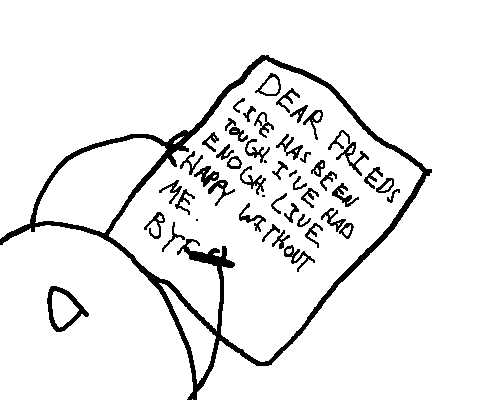 DEAR FRIEDS
LIFE HAS BEEN
TOUGH. I'VE HAD
ENOGH. LIVE
HAPPY WITHOUT
ME.
BYE